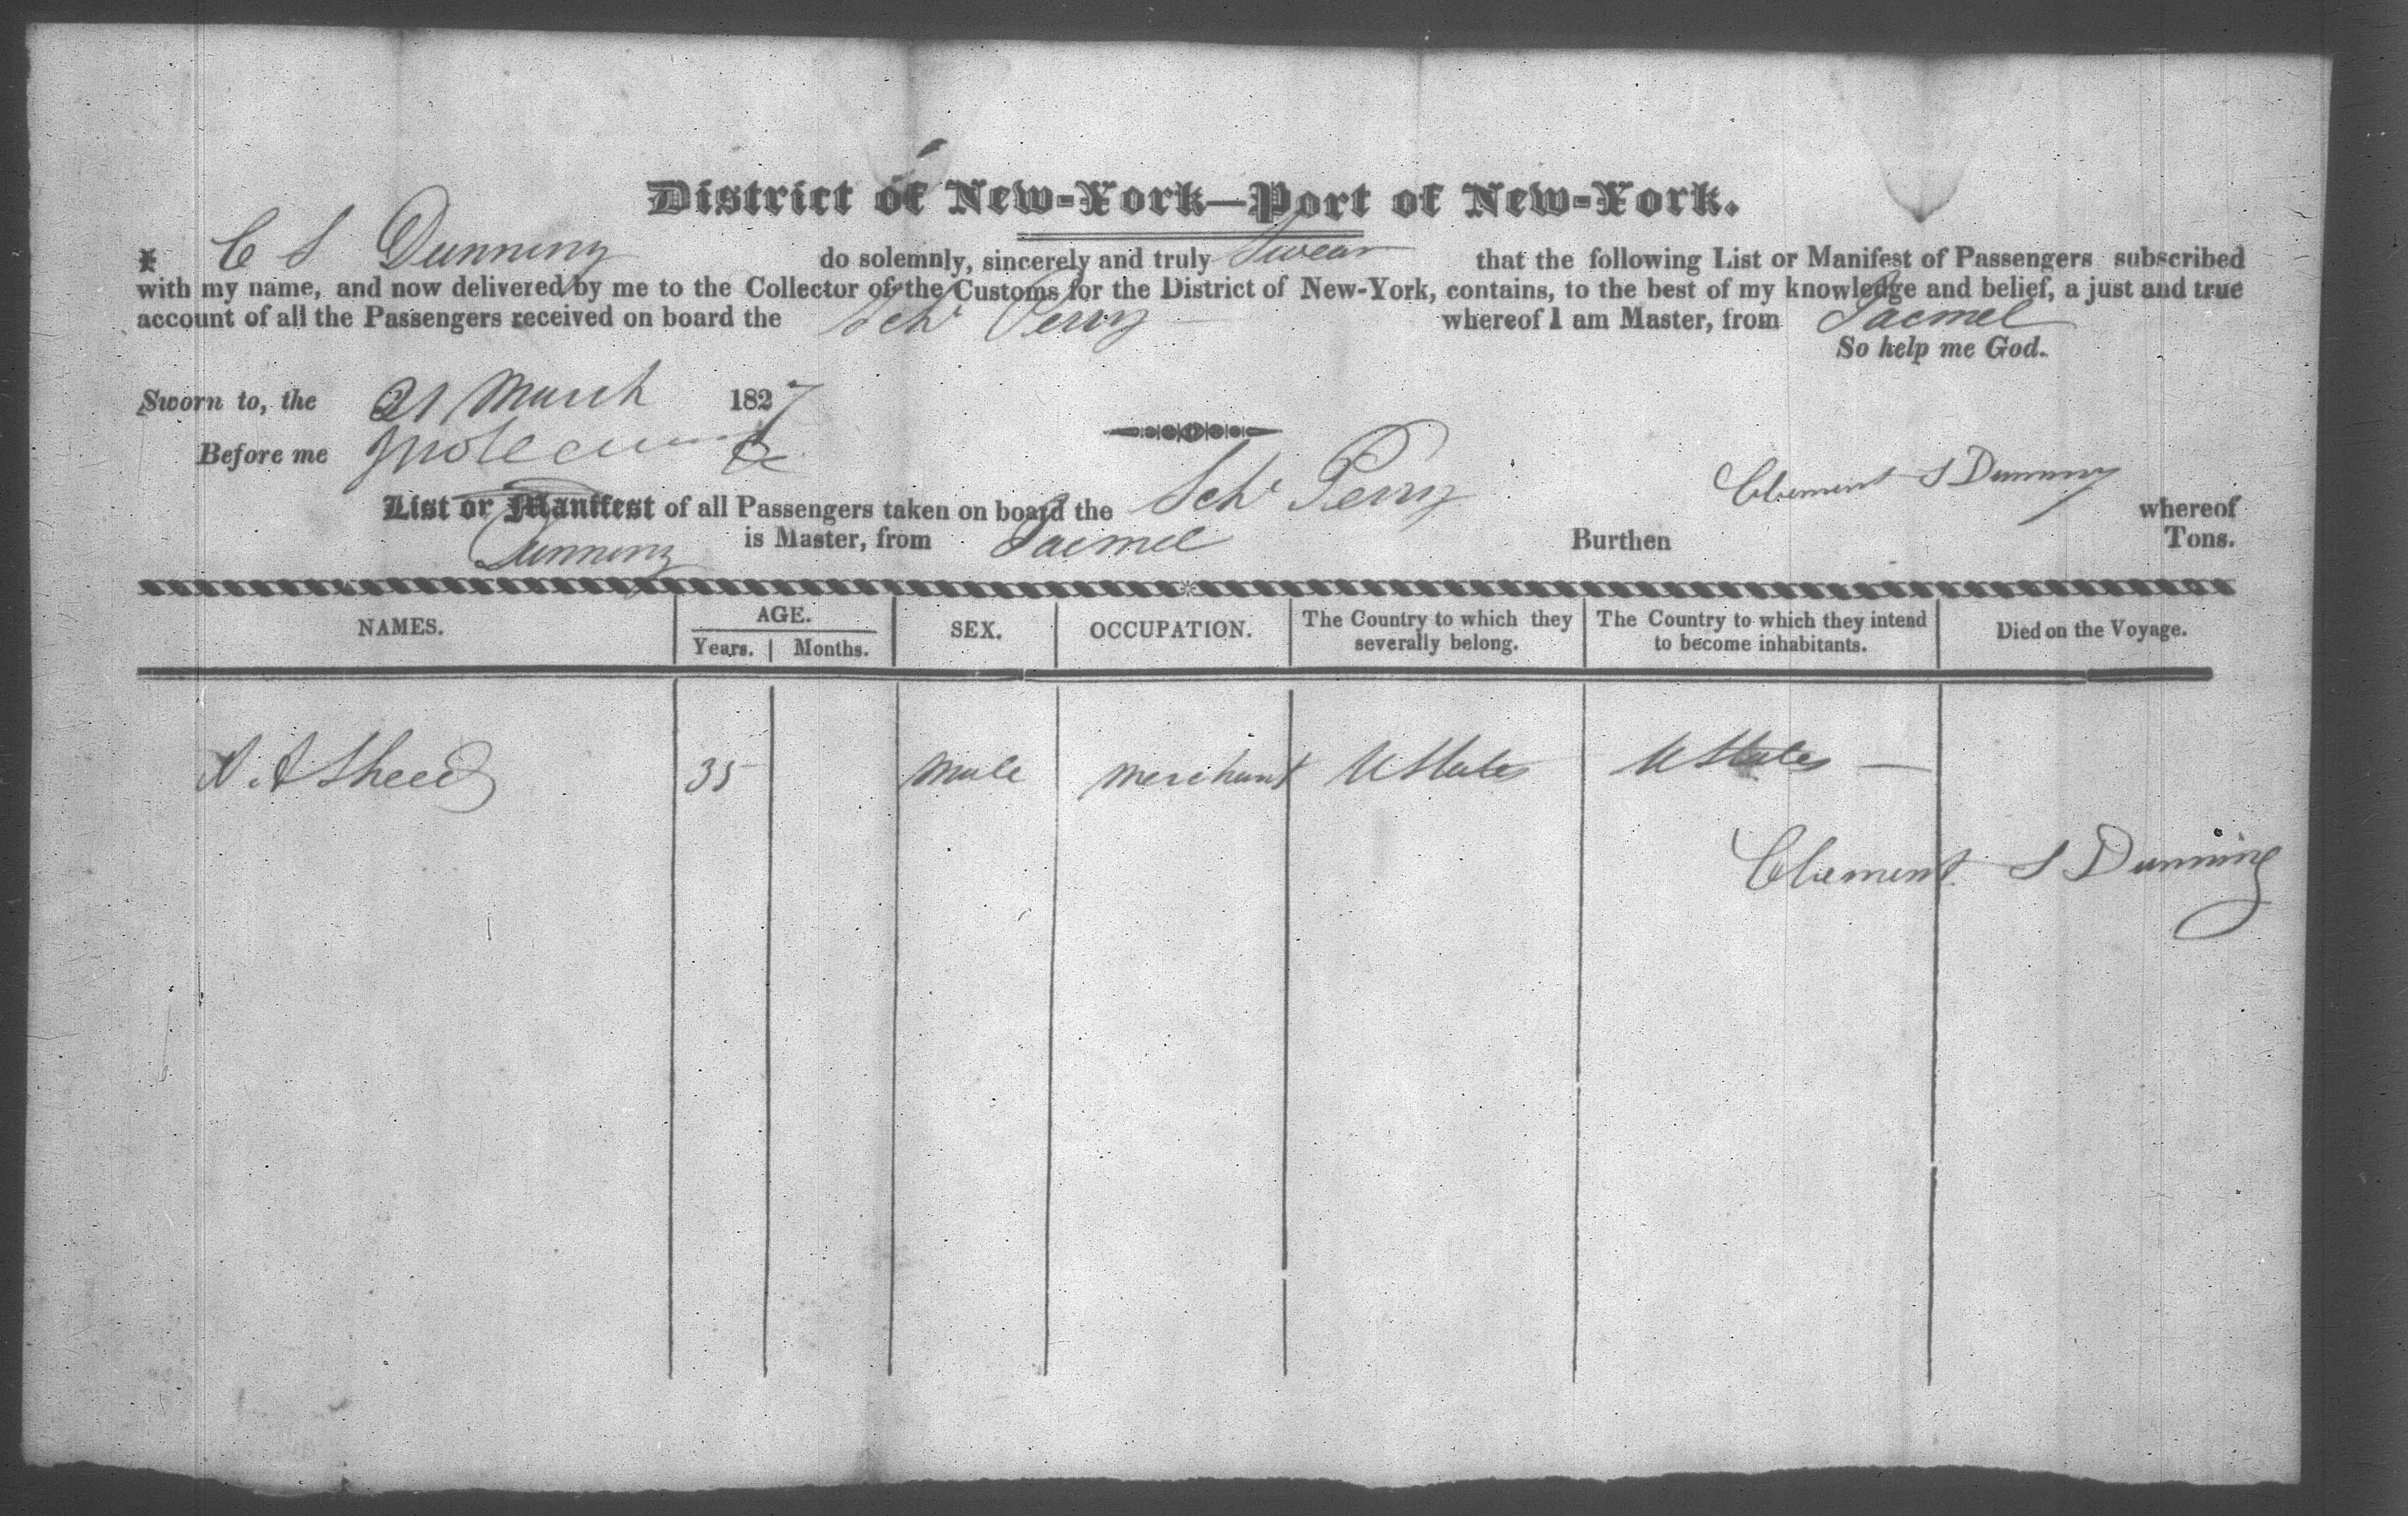 District of New-York—Port of New-York.
I C S Dunning do solemnly, sincerely and truly Swear that the following List or Manifest of Passengers subscribed
with my name, and now delivered by me to the Collector of the Customs for the District of New-York, contains, to the best of my knowledge and belief, a just and true
account of all the Passengers received on board the Schr Perry whereof I am Master, from Jacmel
So help me God.
Sworn to, the 21 March 1827
Before me
List or Manifest of all Passengers taken on board the Schr Perry Clement S Dunning whereof
Dunning is Master, from Jacmel Burthen Tons.
NAMES. AGE. Years. Months. SEX. OCCUPATION. The Country to which they severally belong. The Country to which they intend to become inhabitants. Died on the Voyage.
N. A Sheed 35 Male Merchant U States U States —
Clement S Dunning